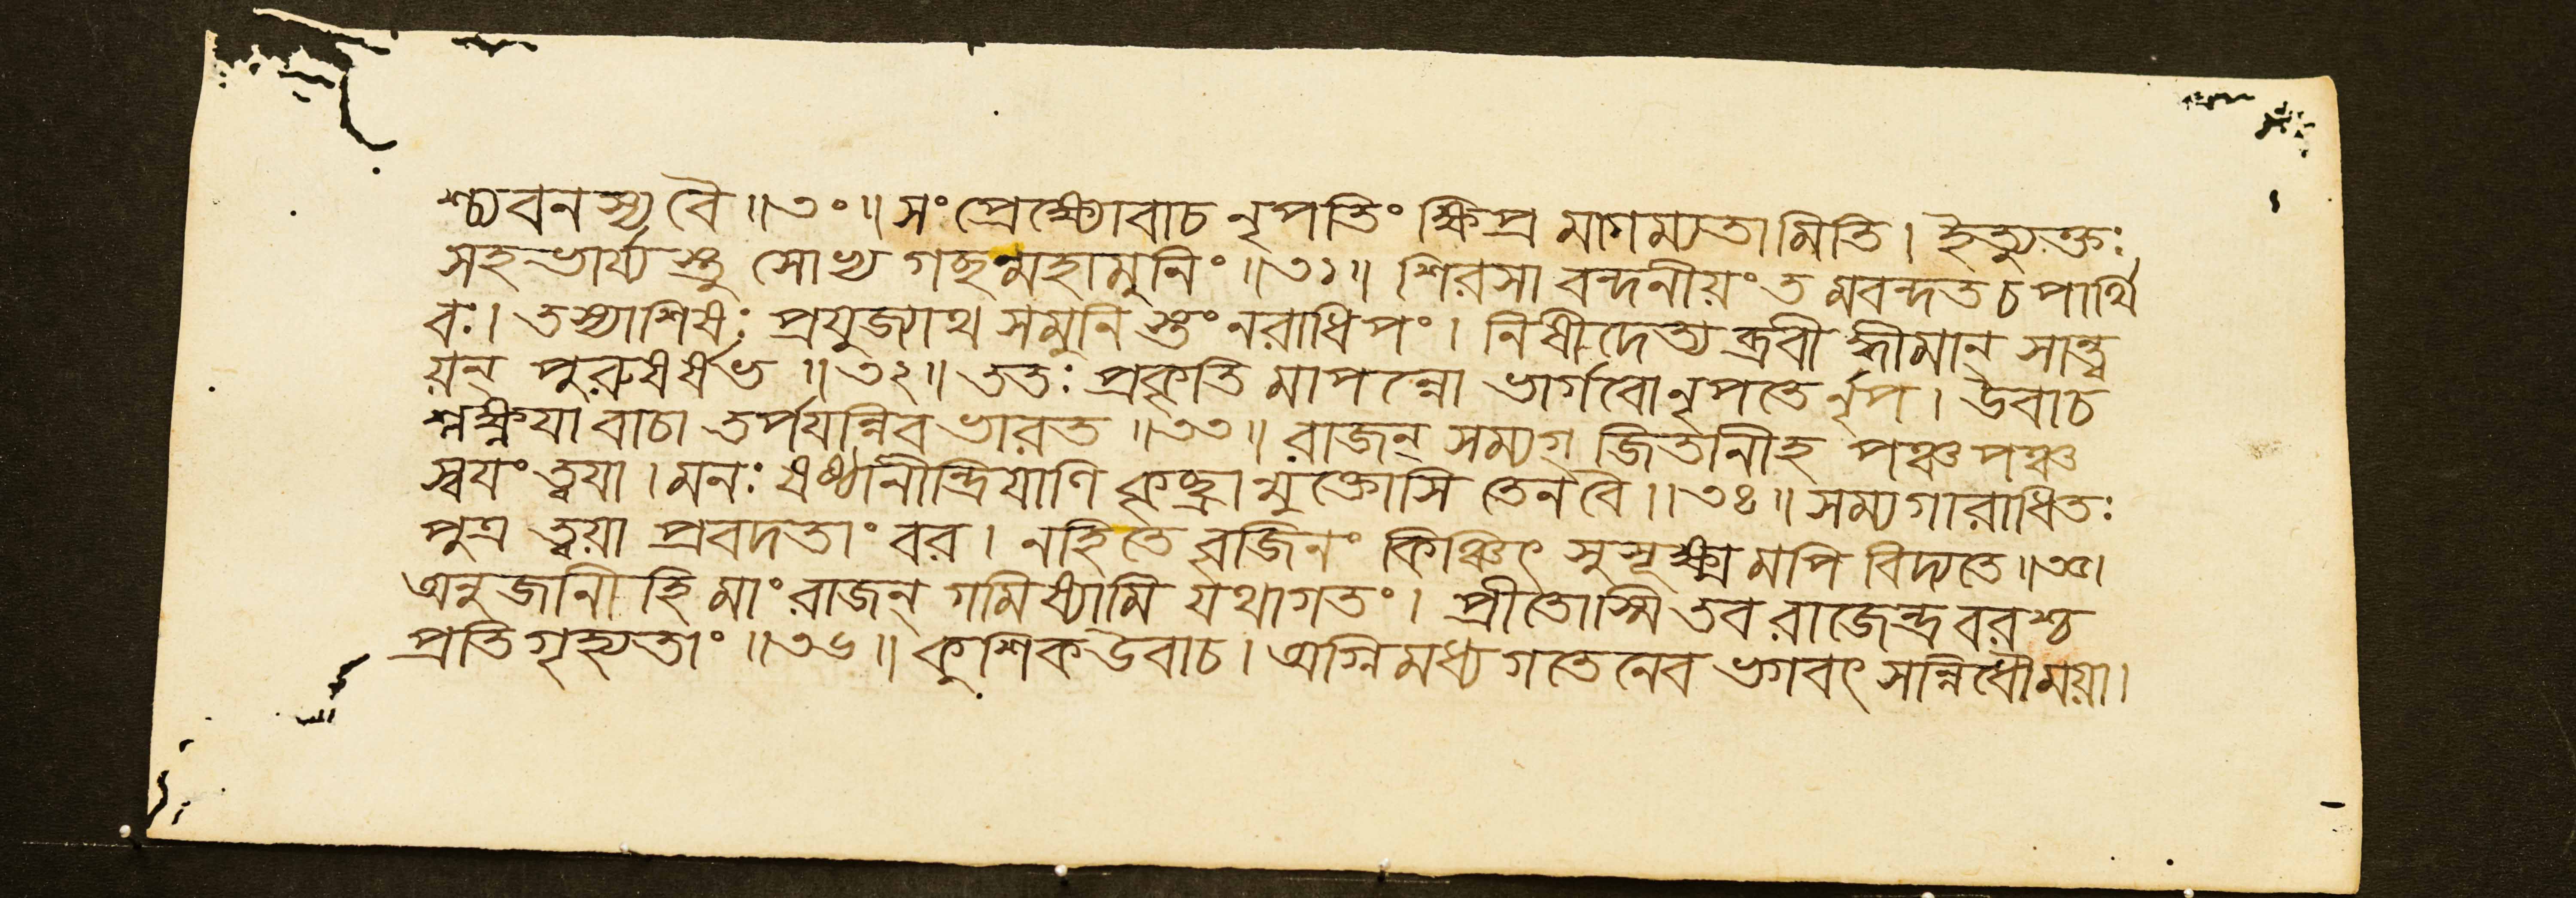 শ্চ্যবনস্য বৈ ॥৩০॥ সংপ্রেক্ষ্যোবাচ নৃপতিং ক্ষিপ্র মাগম্যতামিতি । ইত্যুক্তঃ
সহভার্য্যস্তু সোভ্য গচ্ছন্মহামুনিং ॥৩১॥ শিরসা বন্দনীয়ং ত মবন্দত চ পার্থি
বঃ । তস্যাশিষঃ প্রযুজ্যাথ সমুনি স্তং নরাধিপং । নিষীদেত্য ব্রবী দ্ধীমান্ সান্ত্ব
য়ন্ পুরুষর্ষভ ॥৩২॥ ততঃ প্রকৃতি মাপন্নো ভার্গবো নৃপতে র্নৃপ । উবাচ
শ্লক্ষ্ণয়া বাচা তর্পয়ন্নিব ভারত ॥৩৩॥ রাজন্ সম্যগ্ জিতানীহ পঞ্চ পঞ্চ
স্বয়ং ত্বয়া । মনঃ ষষ্ঠানীন্দ্রিয়াণি কৃচ্ছ্রা মুক্তোসি তেন বৈ ॥৩৪॥ সম্যগারাধিতঃ
পুত্র ত্বয়া প্রবদতাং বর । নহি তে বৃজিনং কিঞ্চিৎ সুসূক্ষ্ম মপি বিদ্যতে ॥৩৫।
অনুজানী হি মাং রাজন্ গমিষ্যামি যথাগতং । প্রীতোস্মি তব রাজেন্দ্র বরশ্চ
প্রতিগৃহ্যতাং ॥৩৬॥ কুশিক উবাচ । অগ্নিমধ্য গতেনেব ভগবৎ সন্নিধৌ ময়া ।